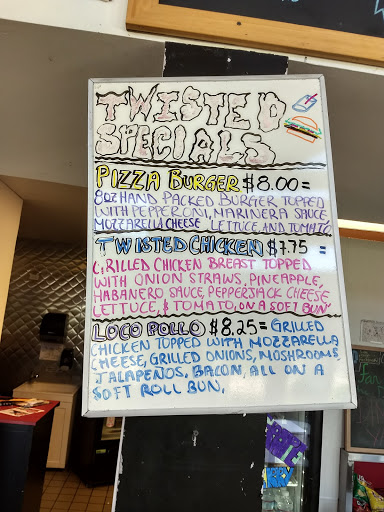 TWISTED
SPECIALS
PIZZA BURGER $8.00=
8oz HAND PACKED BURGER TOPPED
WITH PEPPERONI, MARINERA SAUCE
MOZZARELLA CHEESE LETTUCE AND TOMATO
TWISTED CHICKEN $7.75 =
GRILLED CHICKEN BREAST TOPPED
WITH ONION STRAWS, PINEAPPLE,
HABANERO SAUCE, PEPPERJACK CHEESE
LETTUCE, & TOMATO, ON A SOFT BUN
LOCO POLLO $8.25= GRILLED
CHICKEN TOPPED WITH MOZZARELLA
CHEESE, GRILLED ONIONS, MOSHROOMS,
JALAPEÑOS, BACON, ALL ON A
SOFT ROLL BUN.